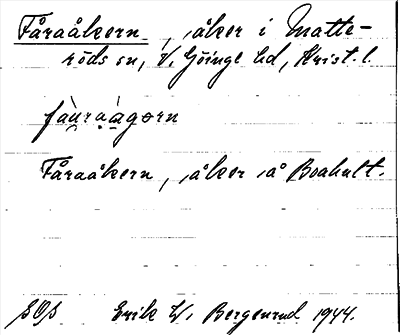 Fåraåkern, åker i Matte-
röds sn, V. Göinge hd, Krist. l.
fàu̯ra̤àgǝrn
Fåraåkern, åker å Boahult.
Erik W. Bergenrud 1944.